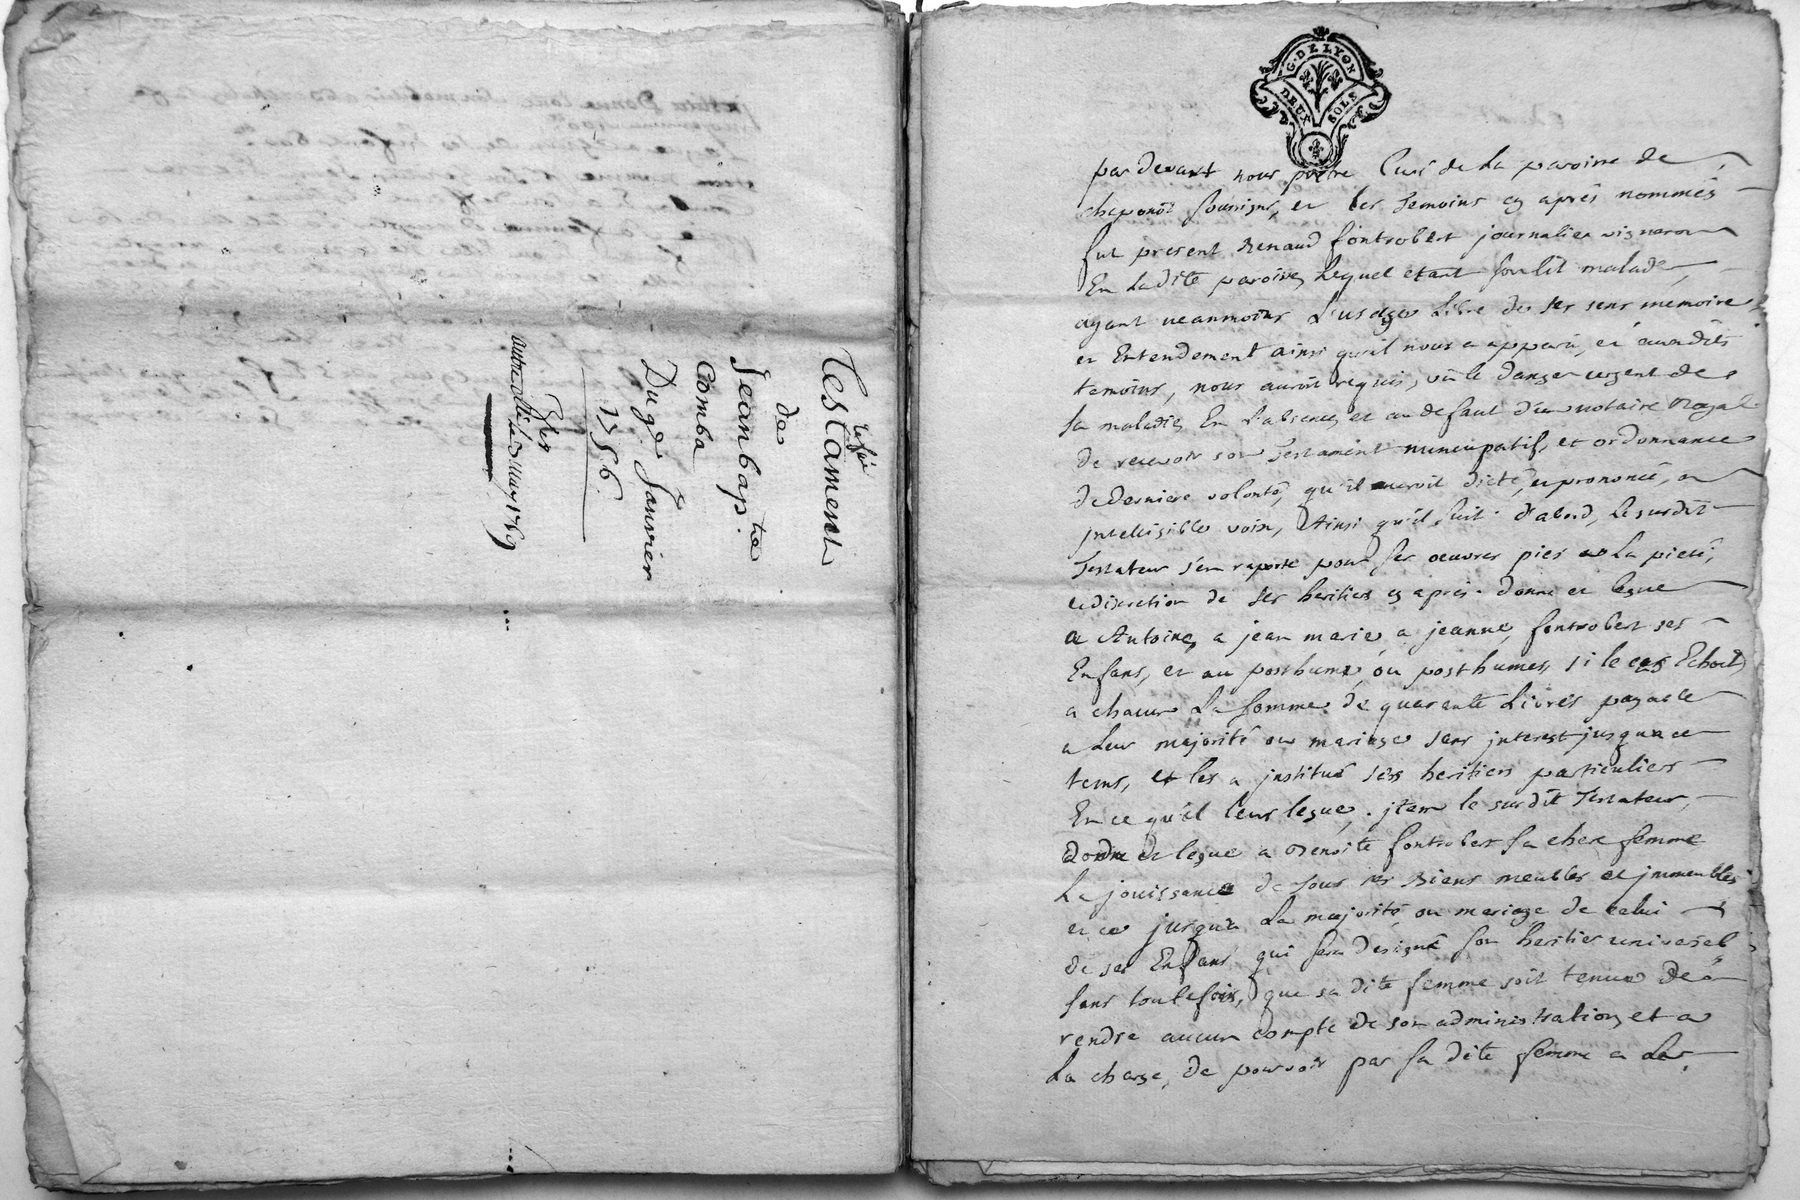 Testament
de
Jean bap.te
Comba
Du 9e Janvier
1756.
autre collé le May 1769
G. DE LYON
DEUX SOLS
par devant nous prêtre Curé de la paroisse de
chaponôt soussigné, et les temoins cy après nommés
fut present Renaud fontrobert journalier vigneron
En ladite paroisse, Lequel etant sur son lit malade,
ayant neanmoins L'usage Libre de ses sens memoire
et Entendement ainsi qu'il nous a apparu, et auxdits
temoins, nous auroit requis, vû le danger urgent de
sa maladie, En L'absence, et au defaut d'un notaire Royal
de recevoir son Testament nuncupatif, et ordonnance
de derniere volonté, qu'il auroit dicté, et prononcé, a
jntelligible voix, Ainsi qu'il suit. d'abord, Le susdit
Testateur s'en raporte pour ses oeuvres pies a La pieté,
et discretion de ses heritiers cy après. donne et legue
a Antoine, a jean marie a jeanne, fontrobert ses
Enfans, et au posthume, ou posthumes, si le cas Echoit
a chacun La somme de quarante Livres payable
a Leur majorité ou mariage sans jnterest jusqu'a ce
tems, et les a jnstitué ses heritiers particuliers
En ce qu'il leur legue. jtem le susdit Testateur,
donne et legue a Benoite fontrobert sa chere femme
La jouissance de tous ses Biens meubles et jmmeubles
et ce jusqu'a La majorité ou mariage de celui
de ses Enfans qui sera designé son heritier universel
sans toutefois, que sa dite femme soit tenue de
rendre aucun compte de son administration, et a
La charge, de pourvoir par sa dite femme a